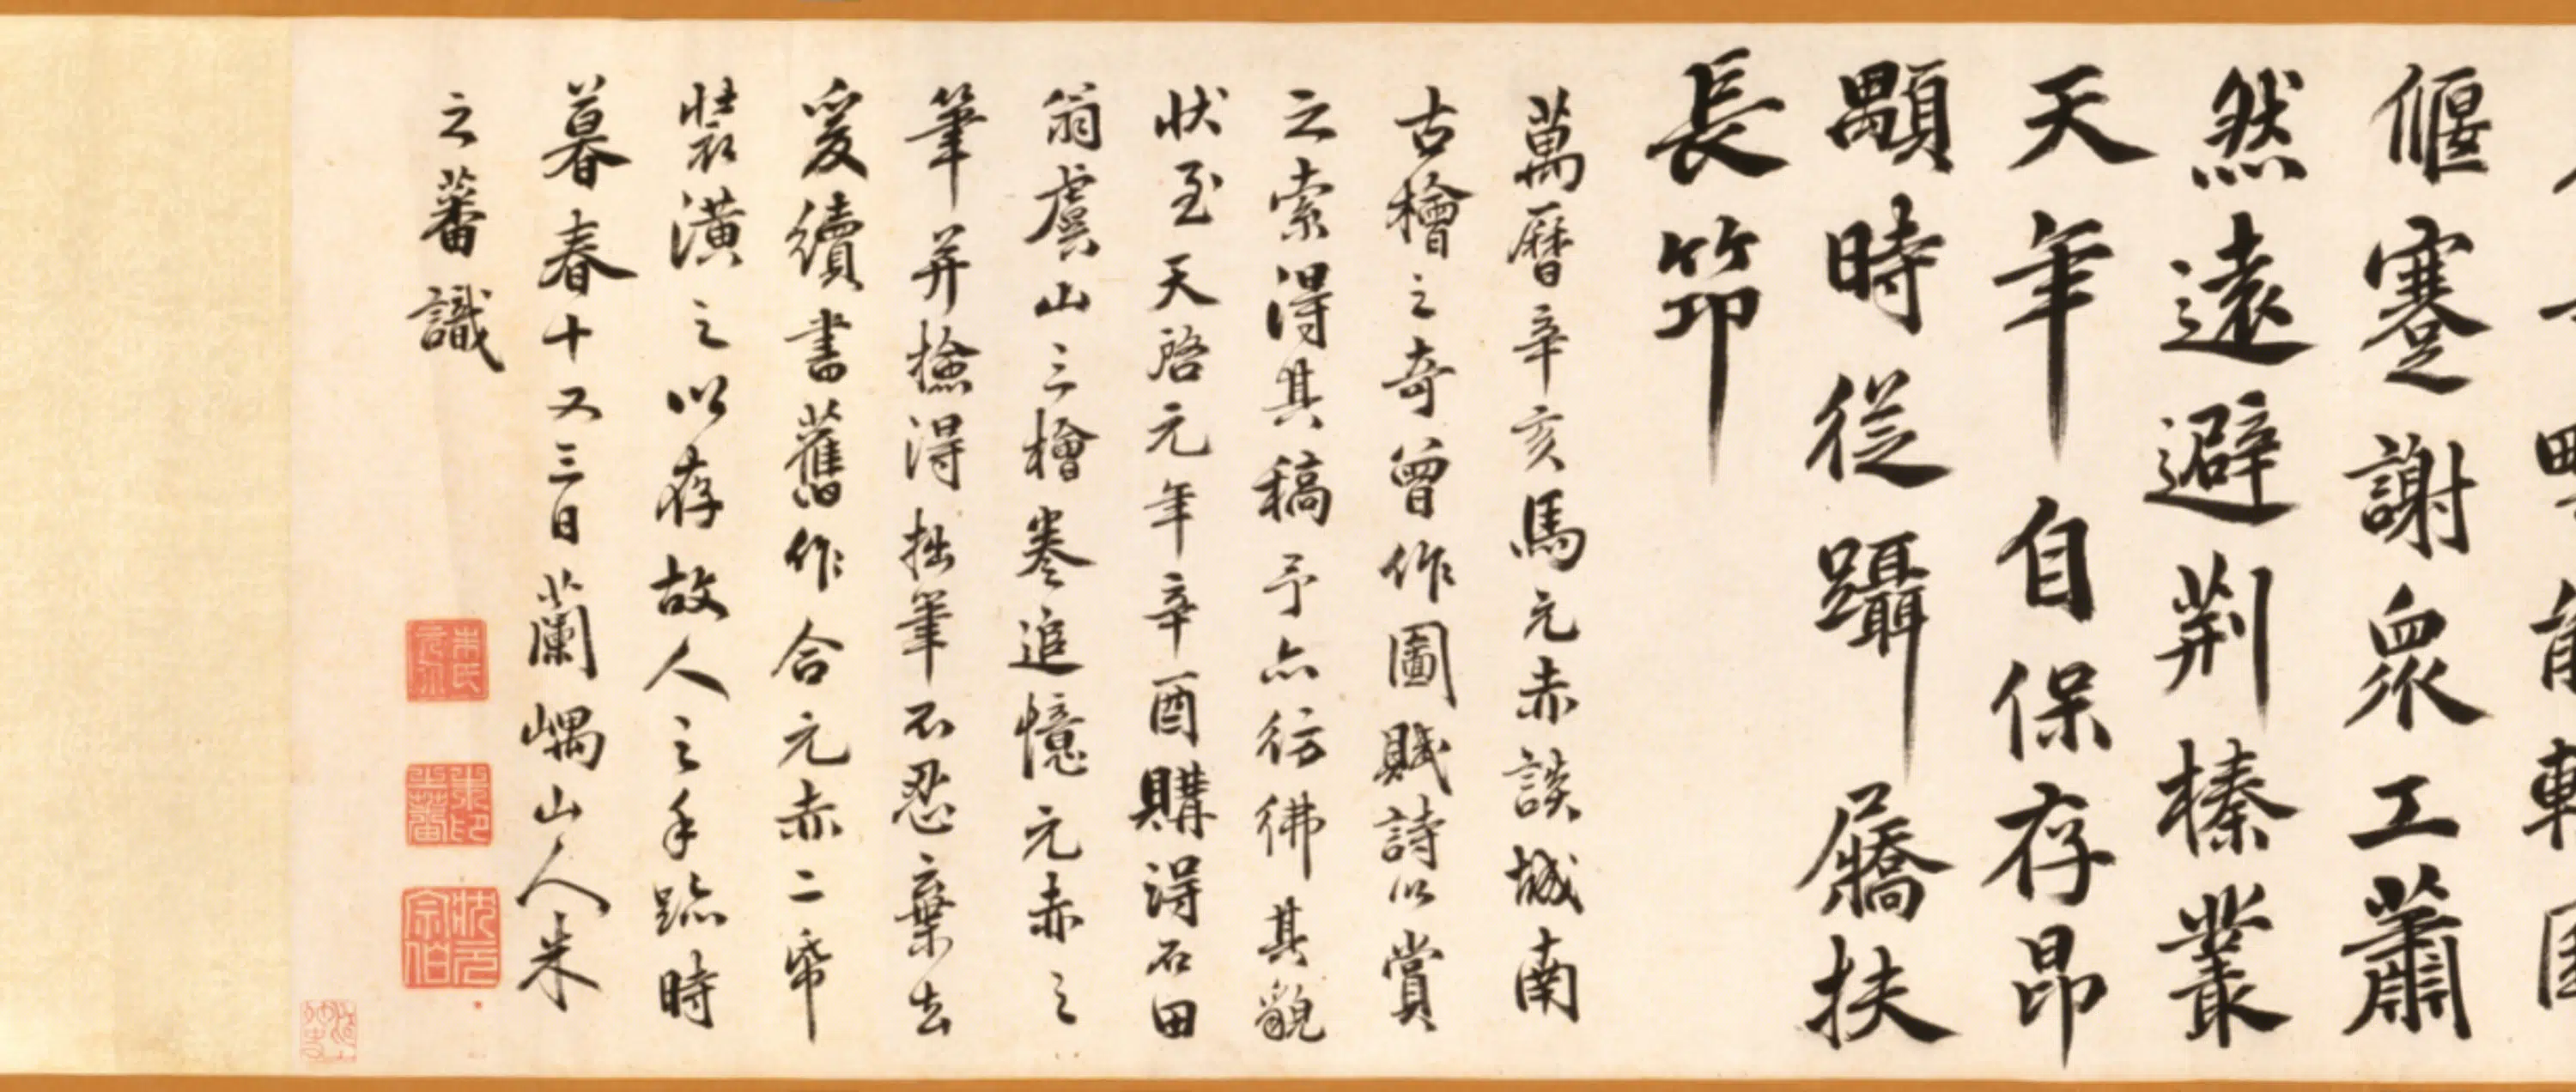 偃蹇謝衆工蕭
然遠避荊榛叢
天年自保存昂
顒時從躡屩扶
長笻
萬曆辛亥馬元赤談城南
古檜之奇曾作圖賦詩以賞
之索得其稿予亦彷彿其貌
狀至天啓元年辛酉購得石田
翁虞山三檜卷追憶元赤之
筆并撿得拙筆不忍棄去
爰續書舊作合元赤二帋
裝潢之以存故人之手跡時
暮春十又三日蘭嵎山人朱
之蕃識
朱氏元介
朱印之蕃
狀元宗伯